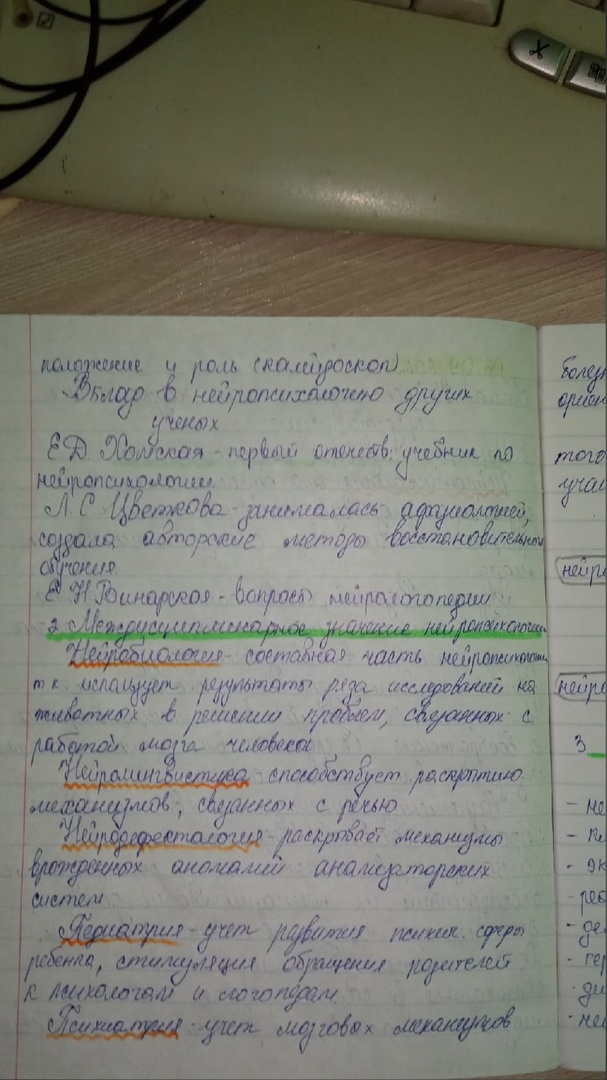 положение и роль (калейдоскоп)
Вклад в нейропсихологию других
ученых
Е.Д. Хомская - первый отечеств. учебник по
нейропсихологии.
Л.С. Цветкова - занималась афазиологией,
создала авторские методы восстановительного
обучения.
Е.Н. Винарская - вопросы нейрологопедии
2. Междисциплинарное значение нейропсихологии
Нейробиология - составная часть нейропсихологии
т.к. использует результаты ряда исследований на
животных в решении проблем, связанных с
работой мозга человека
Нейролингвистика способствует раскрытию
механизмов, связанных с речью
Нейродефектология - раскрывает механизмы
врожденных аномалий анализаторских
систем
Педиатрия - учет развития психич. сферы
ребенка, стимуляция обращения родителей
к психологам и логопедам
Психиатрия - учет мозговых механизмов
того
нейро
нейро
3